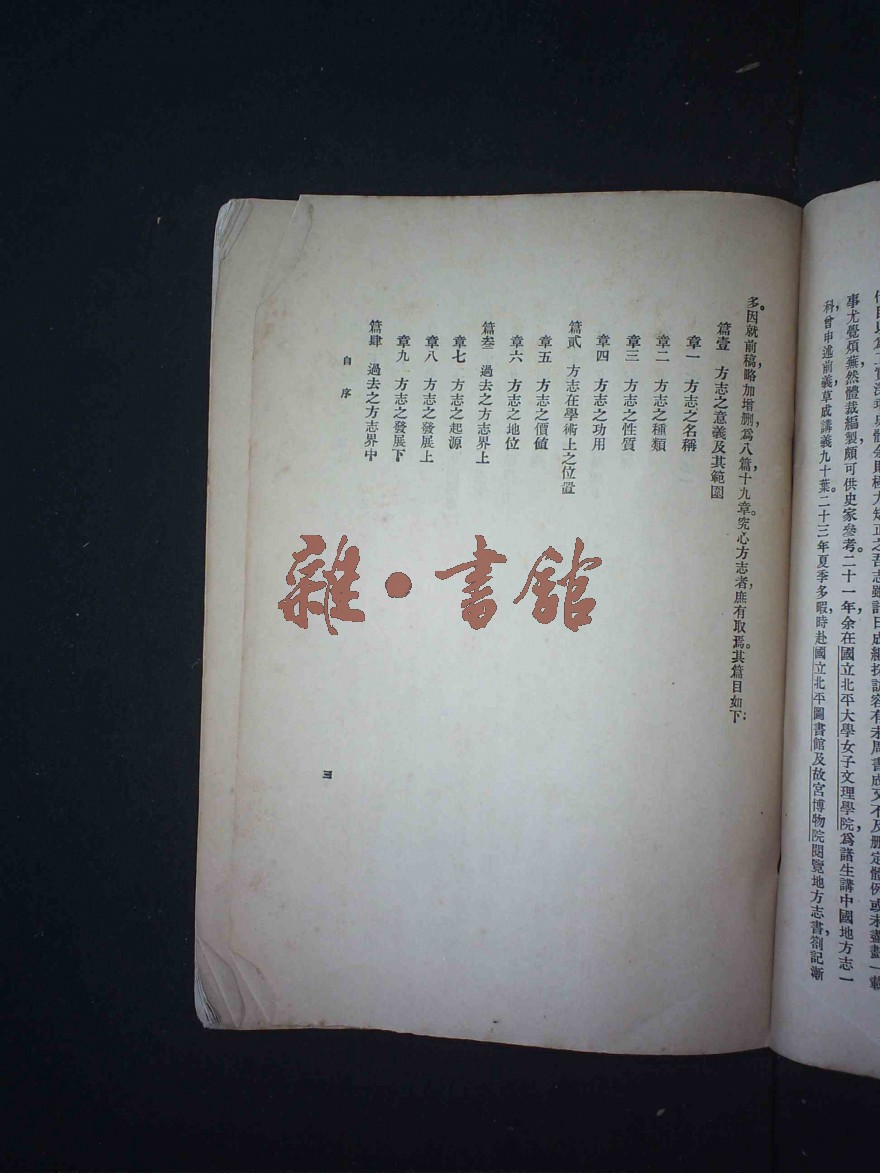 事尤覺煩蕪然體裁編製頗可供史家參考。二十一年，余在國立北平大學女子文理學院，爲諸生講中國地方志一
科，曾申述前義，草成講義九十葉。二十三年夏季多暇，時赴國立北平圖書館及故宮博物院閱覽地方志書，劄記漸
多。因就前稿，略加增删，爲八篇，十九章。究心方志者，庶有取焉。其篇目如下：
篇壹　方志之意義及其範圍
章一　方志之名稱
章二　方志之種類
章三　方志之性質
章四　方志之功用
篇貳　方志在學術上之位置
章五　方志之價值
章六　方志之地位
篇叁　過去之方志界上
章七　方志之起源
章八　方志之發展上
章九　方志之發展下
篇肆　過去之方志界中
自序
三
雜·書館